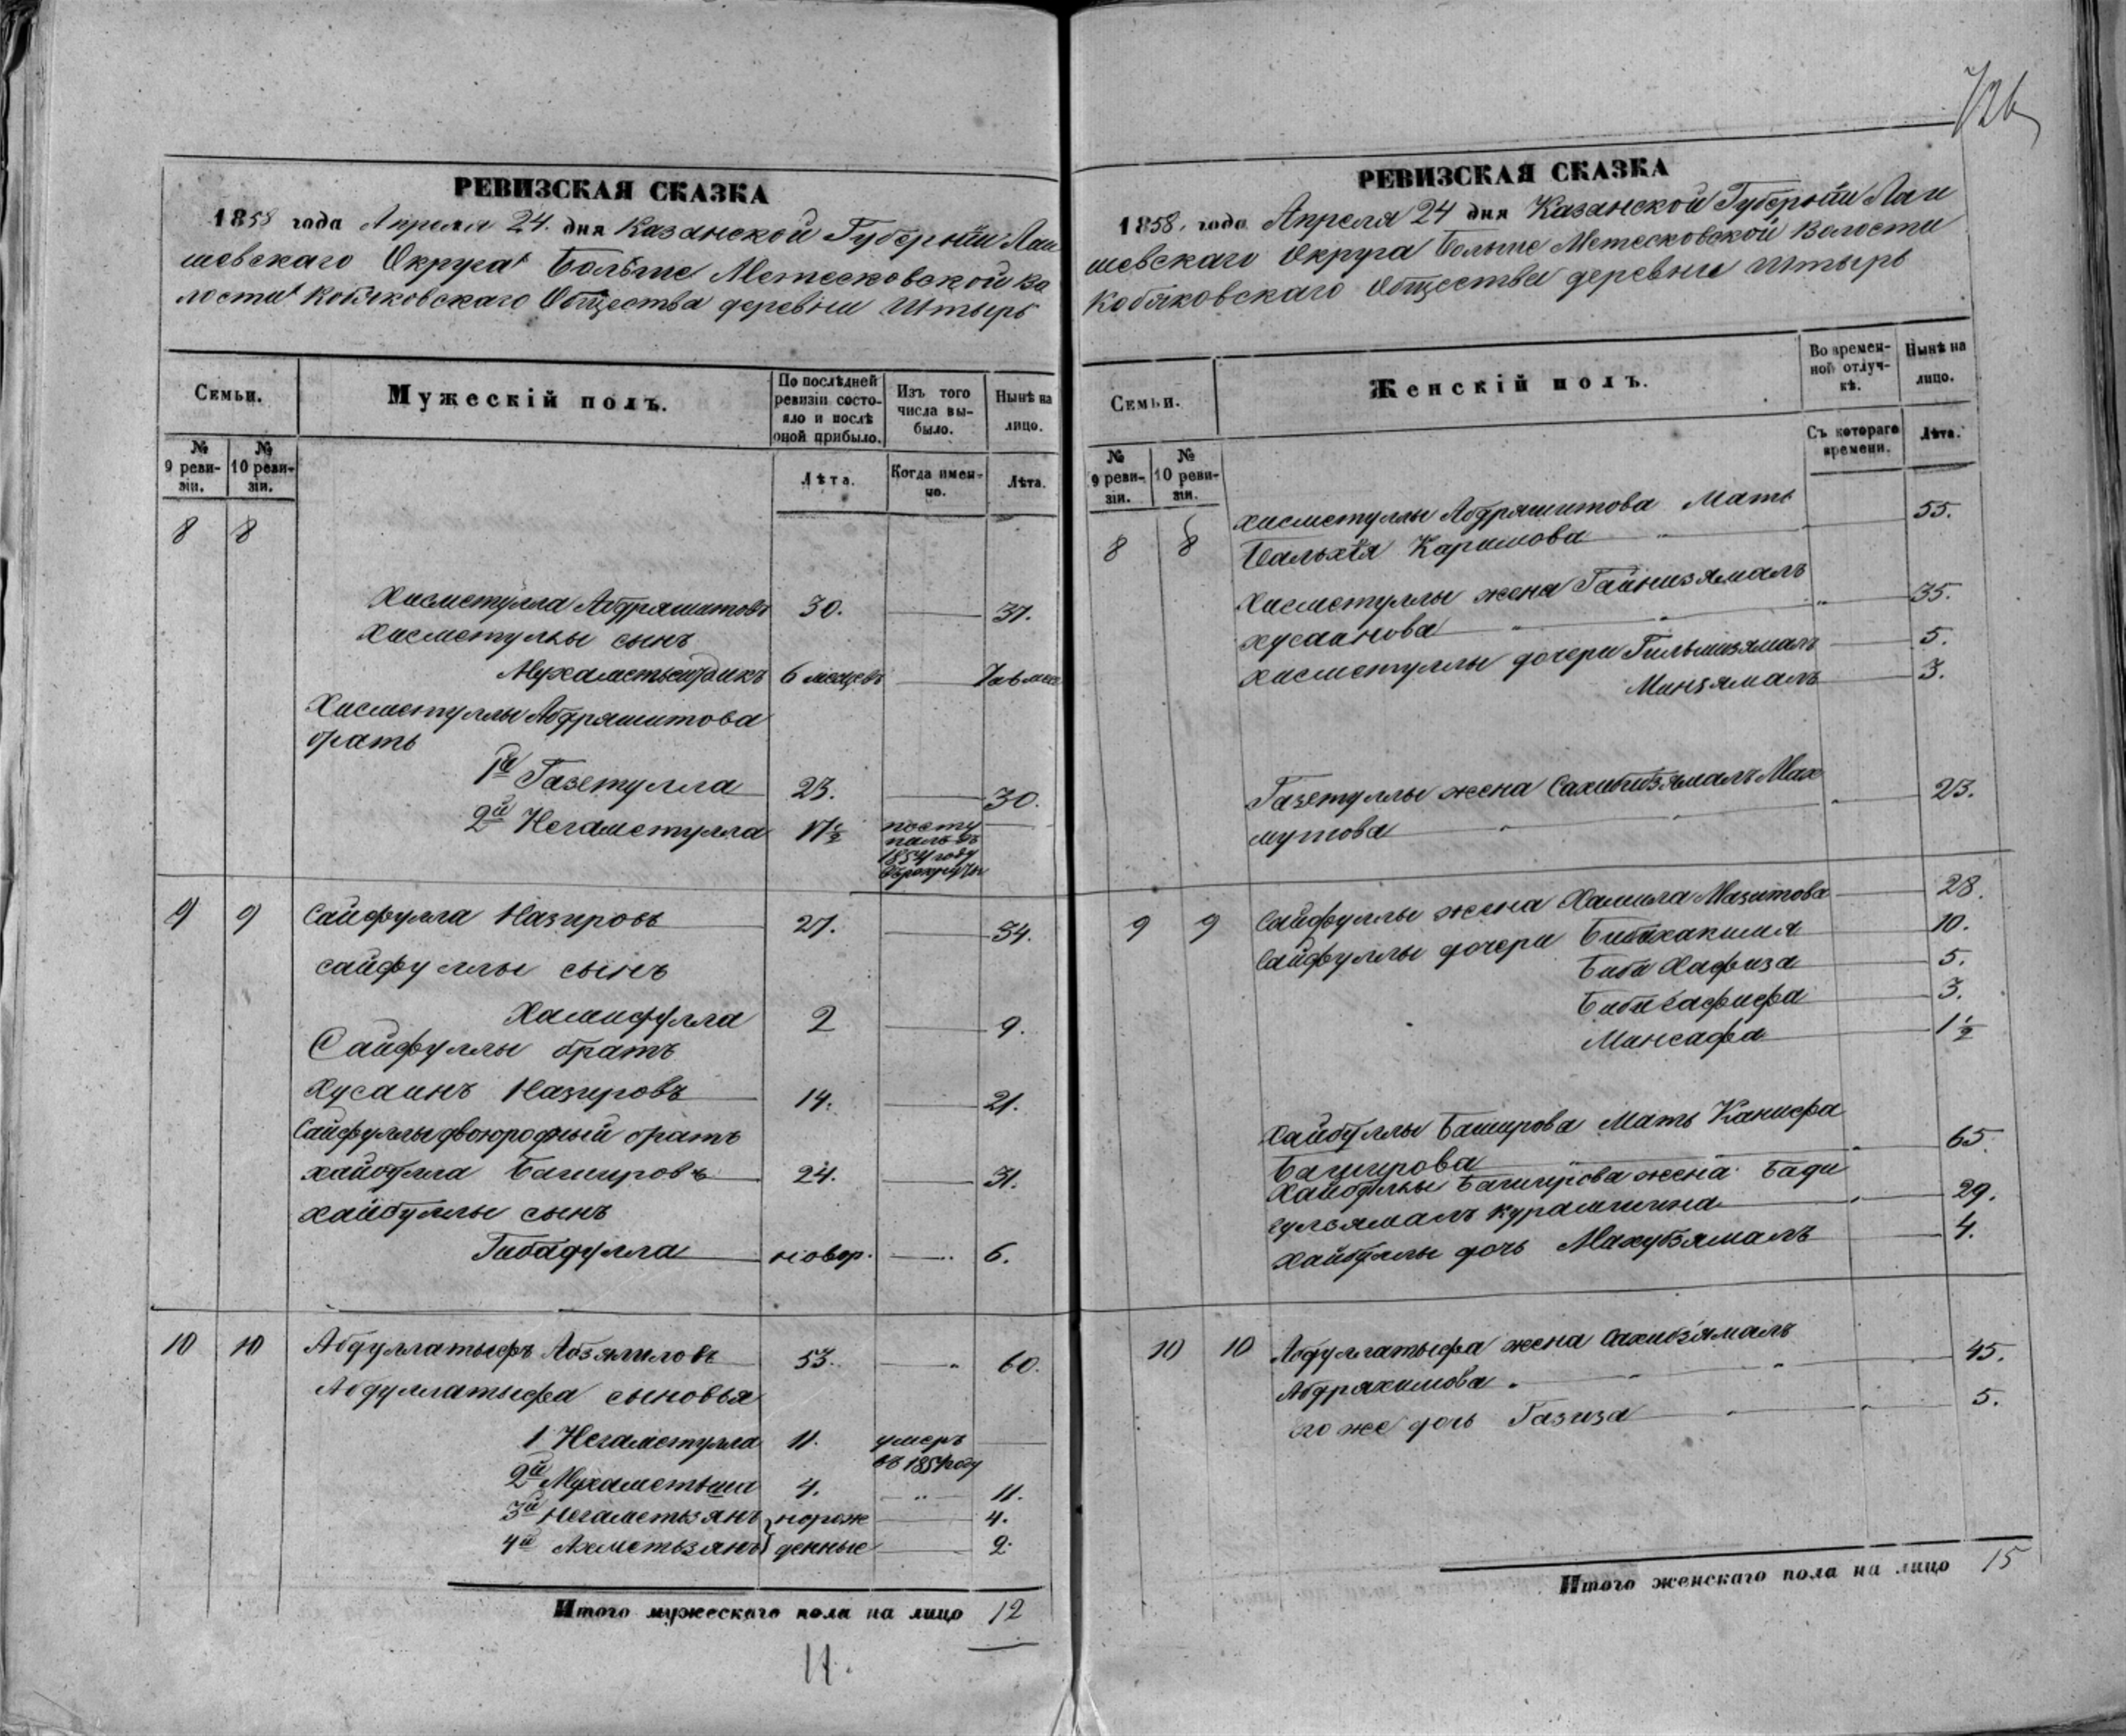 РЕВИЗСКАЯ СКАЗКА
1858 года Апреля 24. дня Казанской Губернiи Лаи
шевскаго Округа Больше Метесковской во
лости Кобяковскаго Общества деревни Иштырь
Семьи.
Мужескiй полъ.
По послѣдней ревизiи состояло и послѣ оной прибыло.
Изъ того числа выбыло.
Нынѣ на лицо.
№ 9 ревизiи.
№ 10 ревизiи.
Лѣта.
Когда именно.
Лѣта.
8 8
Хисметулла Абдряшитовъ 30. 37.
Хисметуллы сынъ
Мухаметьсадыкъ 6 месецевъ 7 ½ мес
Хисметуллы Абдряшитова
братъ
1й Газетулла 23. 30.
2й Негаметулла 17½ посту
палъ въ
1854 году
въ рекруты
9 9 Сайфулла Назировъ 27. 34.
Сайфуллы сынъ
Хамидулла 2 9.
Сайфуллы братъ
Хусаинъ Назировъ 14. 21.
Сайфуллы двоюродный братъ
Хайбулла Башировъ 24. 31.
Хайбуллы сынъ
Гибадулла новор. 6.
10 10 Абдуллатыфъ Абзялиловъ 53. 60.
Абдуллатыфа сыновья
1 Негаметулла 11. умеръ
въ 1854 году
2й Мухаметьша 4. 11.
3й Негаметьзянъ } нарож 4.
4й Ахметьзянъ } денные 2.
Итого мужескаго пола на лицо 12
11.
726
РЕВИЗСКАЯ СКАЗКА
1858. года Апреля 24 дня Казанской Губернiи Лаи
шевскаго Округа Больше Метесковской Волости
Кобяковскаго Общества деревни Иштырь
Семьи.
Женскiй полъ.
Во временной отлучкѣ.
Нынѣ на лицо.
№ 9 ревизiи.
№ 10 ревизiи.
Съ котораго времени.
Лѣта.
Хисметуллы Абдряшитова Мать
8 8 Каримова 55.
Хисметуллы жена Гайнизямалъ
Хусаинова 35.
Хисметуллы дочери Гильмизямалъ 5.
Минзямалъ 3.
Газетуллы жена Сахибизямалъ Мах
мутова 23.
9 9 Сайфуллы жена Халила Мазитова 28.
Сайфуллы дочери Бибихакима 10.
Биби Хафиза 5.
Биби Кафифа 3.
Минсафа 1½
Хайбуллы Баширова Мать Канифа
Баширова 65.
Хайбуллы Баширова жена Бади
гулзямалъ Курамшина 29.
Хайбуллы дочь Махубзямалъ 4.
10 10 Абдуллатыфа жена Сахибзямалъ
Абдряхимова 45.
Его же дочь Газиза 5.
Итого женскаго пола на лицо 15